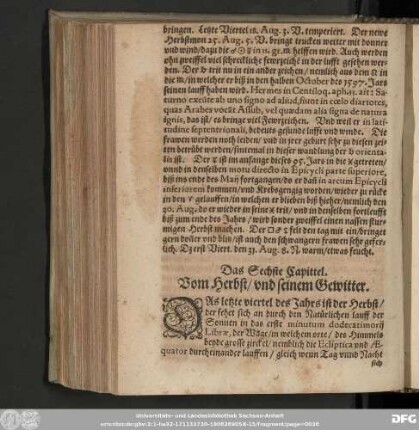 bringen. Letzte Viertel 18. Aug. 3. V. temperiert. Der newe
Herbstmon 25. Aug. 5. V. bringt trucken wetter mit donner
und wind/dazu die ☌ ☉ ☿ in ♍. gr. ♏ helffen wird. Auch werden
ohn zweiffel viel schreckliche fewrzeichẽ in der lufft gesehen wer-
den. Der ♄ trit nu in ein ander zeichen / nemlich aus dem ♌ in die
♍/in welcher er biß in den halben October des 1597. Jars
seinen lauff haben wird. Hermes in Centiloq. aphar. ait: Sa-
turno exeũte ab uno signo ad aliud, fiunt in cœlo diartotes,
quas Arabes vocãt Assub, vel quædam alia signa de natura
ignis, das ist/ es bringe viel Fewrzeichen. Und weil er in lati-
tudine septentrionali, bedeuts gesunde lufft und winde. Die
frawen werden noth leiden/ und in jrer geburt sehr zu diesen zei-
ten betrübt werden/sintemal in dieser wandlung der ♄ orienta-
lis ist. Der ist im anfange dieses 95. Jars in die getreten/
unnd in denselben motu directo in Epicycli parte superiore,
biß ins ende des Maij fortgangen/do er daň in arcum Epicycli
inferiorem kommen/und Krebsgengig worden/wieder zu rücke
in den ♈ gelauffen/in welchen er blieben biß hieher/nemlich den
30. Aug. do er wieder in seine trit/ und in denselben fortleufft
biß zum ende des Jahrs / wird sonder zweiffel einen nassen stur-
migen Herbst machen. Der felt den tag mit ein/bringet
gern doller und blin/ist auch den schwangern frawen sehr gefer-
lich. Dz erst Viert. den 31. Aug. 8. N. warm/etwas feucht.
Das Sechste Capittel.
Vom Herbst/ und seinem Gewitter.
DAs letzte viertel des Jahrs ist der Herbst/
der fehet sich an durch den Natürlichen lauff der
Sonnen in das erste minutum dodecatimorij
Libræ, der Wage/in welchem orte/ des Himmels
beude grosse zirckel/ nemblich die Ecliptica und Æ-
quator durch einander lauffen/ gleich wenn Tag unnd Nacht
sich
Universitäts- und Landesbibliothek Sachsen-Anhalt